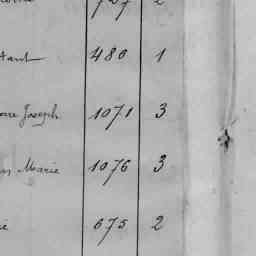 727 2
480 1
Joseph 1071 3
Marie 1076 3
675 2